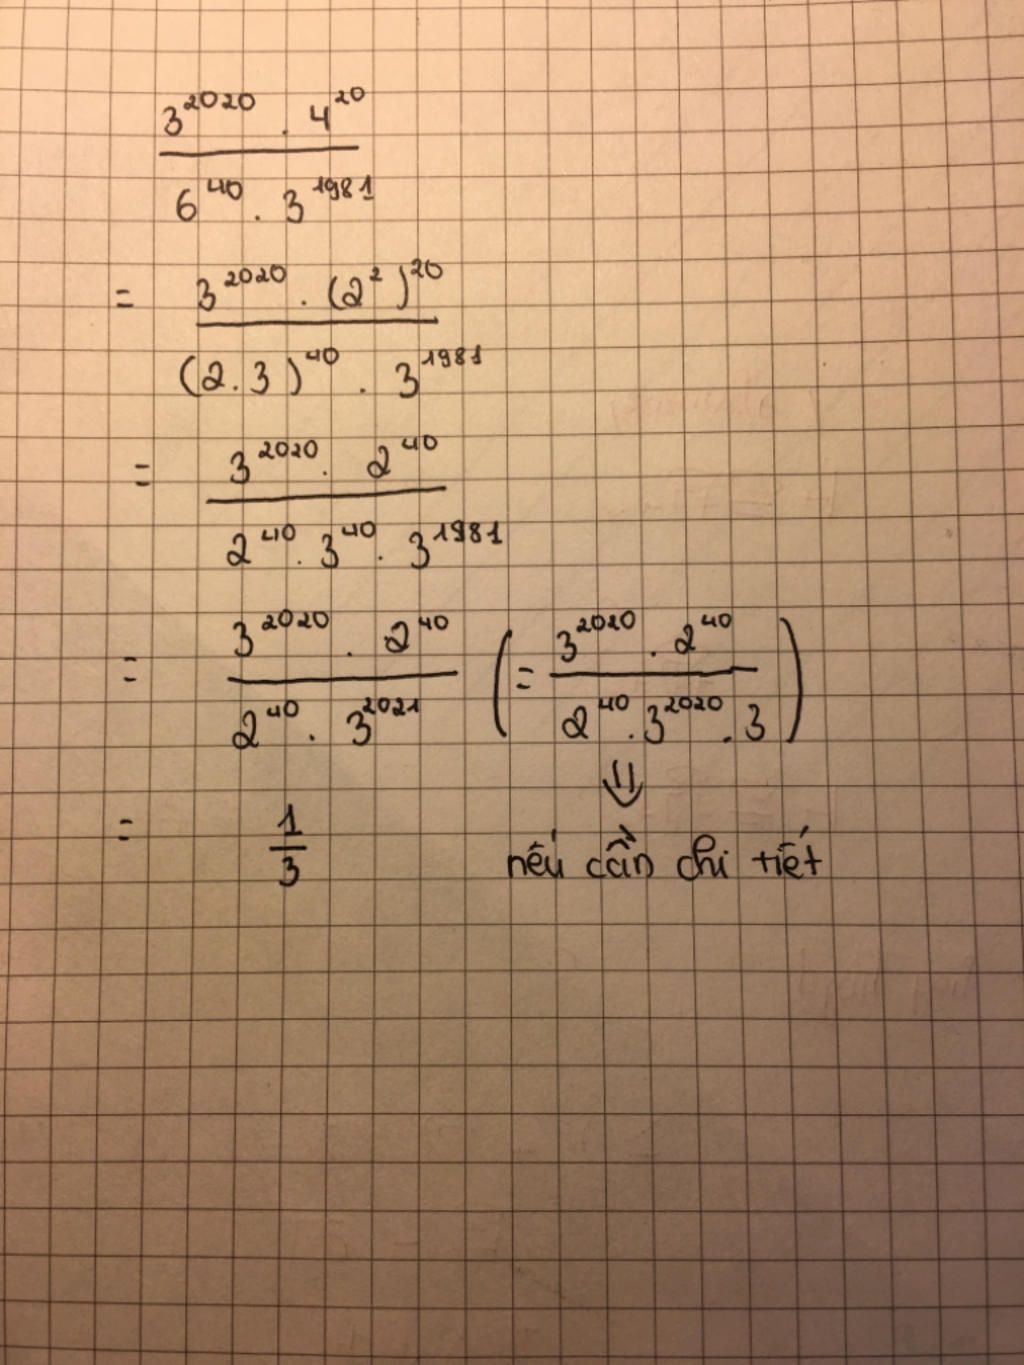 3^2020 . 4^20
6^40 . 3^1981
= 3^2020 . (2^2)^20
(2.3)^40 . 3^1981
= 3^2020 . 2^40
2^40 . 3^40 . 3^1981
= 3^2020 . 2^40 (= 3^2020 . 2^40
2^40 . 3^2021 2^40 . 3^2020 . 3)
⇓
= 1
3
nếu cần chi tiết